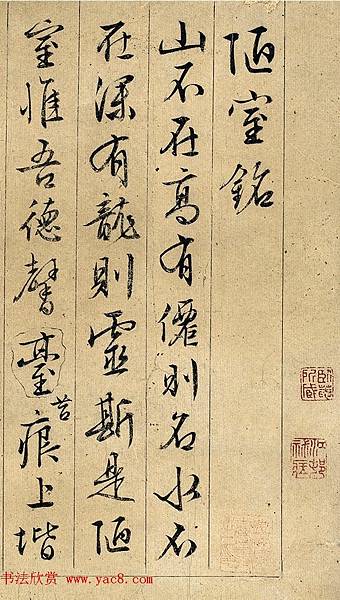 陋室銘
山不在高有僊則名水不
在深有龍則靈斯是陋
室惟吾德馨臺苔痕上堦
书法欣赏 www.yac8.com